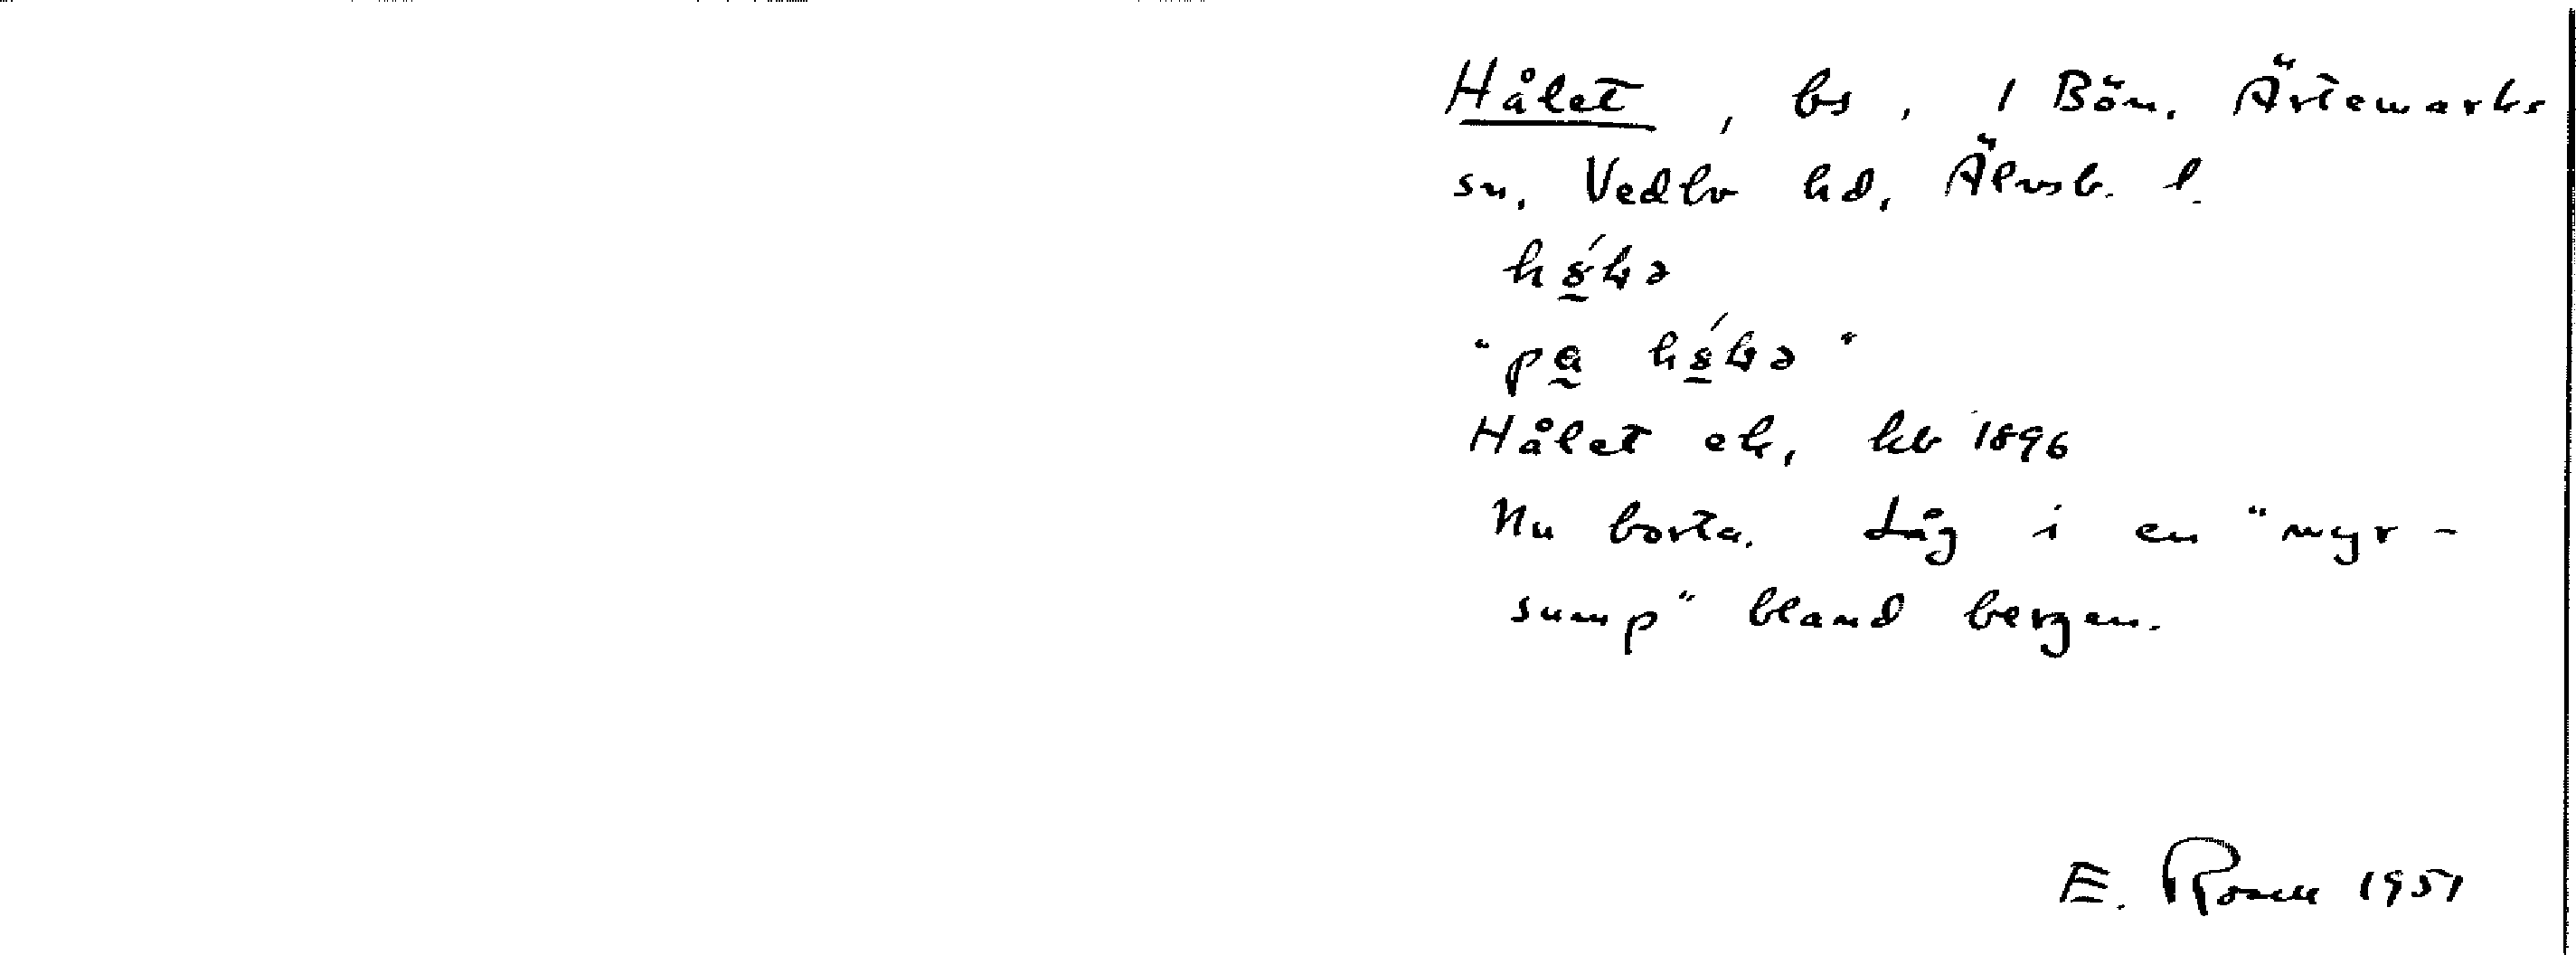 Hålet, bs, 1 Bön, Ärtemarks
sn, Vedbo hd, Älvsb. l.
"pa
Hålet eh, kb 1896
Nu borta. Låg i en "myr-
sump" bland bergen.
E. Rosell 1951